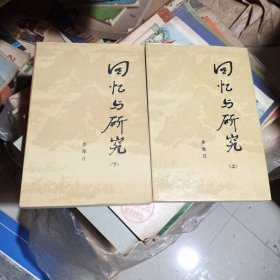 回忆与研究
(下)
李维汉
回忆与研究
(上)
李维汉